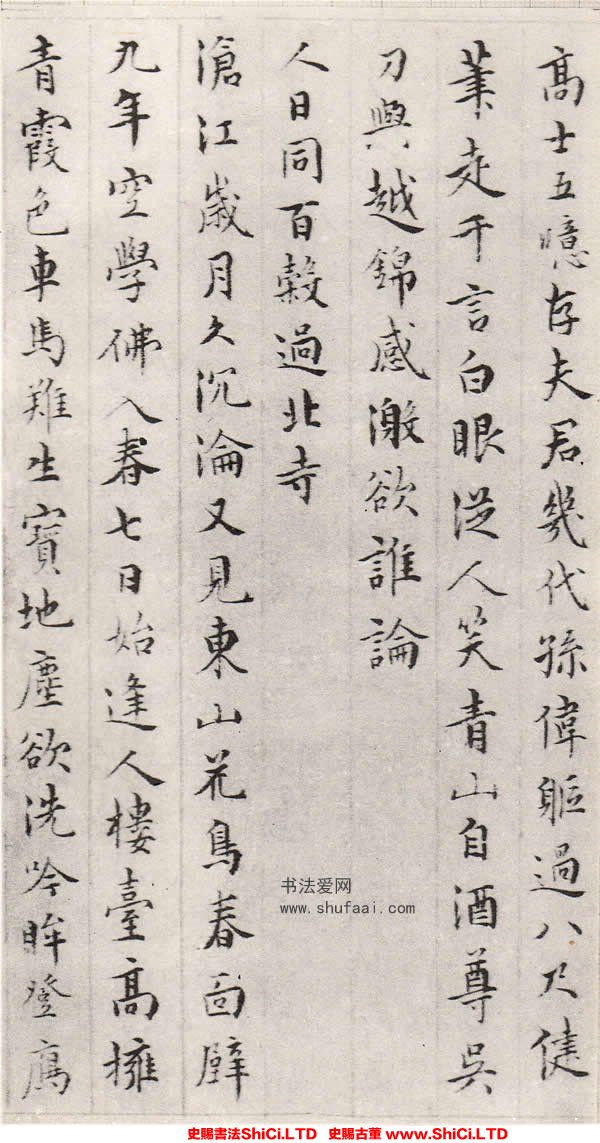 高士五憶存夫君幾代孫偉軀過八尺健
筆走千言白眼從人笑青山自酒尊吳
刀與越錦感激欲誰論
人日同百穀過北寺
滄江歲月久沉淪又見東山花鳥春面壁
九年空學佛入春七日始逢人樓臺高擁
青霞色車馬難生寶地塵欲洗吟眸登
书法爱网
www.shufaai.com
史賜書法ShiCi.LTD 史賜古董 www.ShiCi.LTD